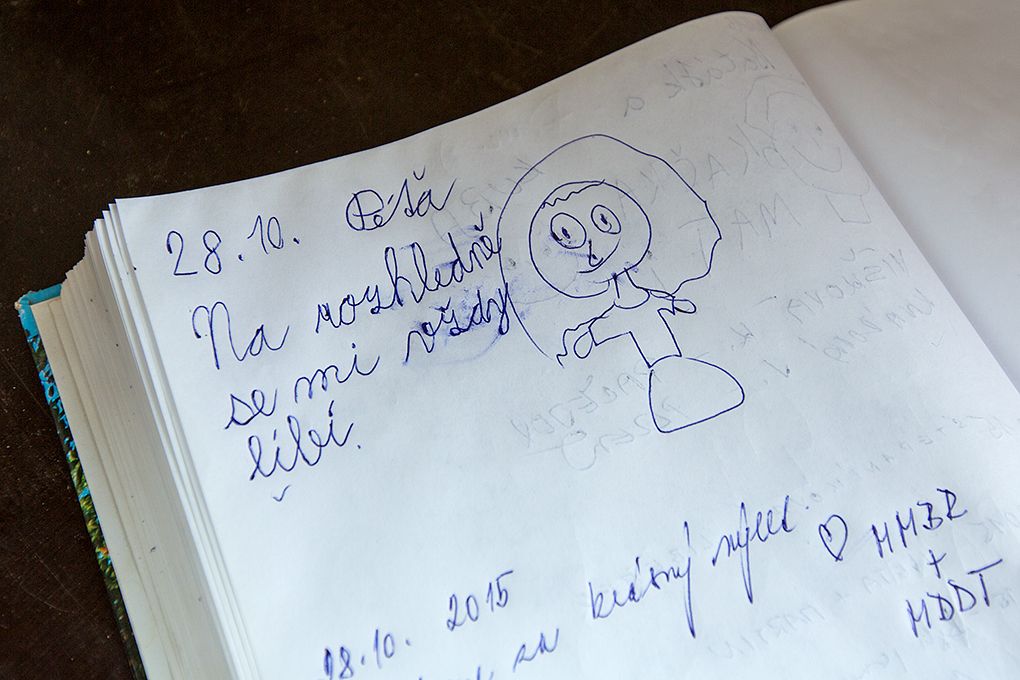 28.10. Péťa
Na rozhledně
se mi vždy
líbí.
28.10. 2015
za krásný výlet. ♡ MMBR
+
MDDT